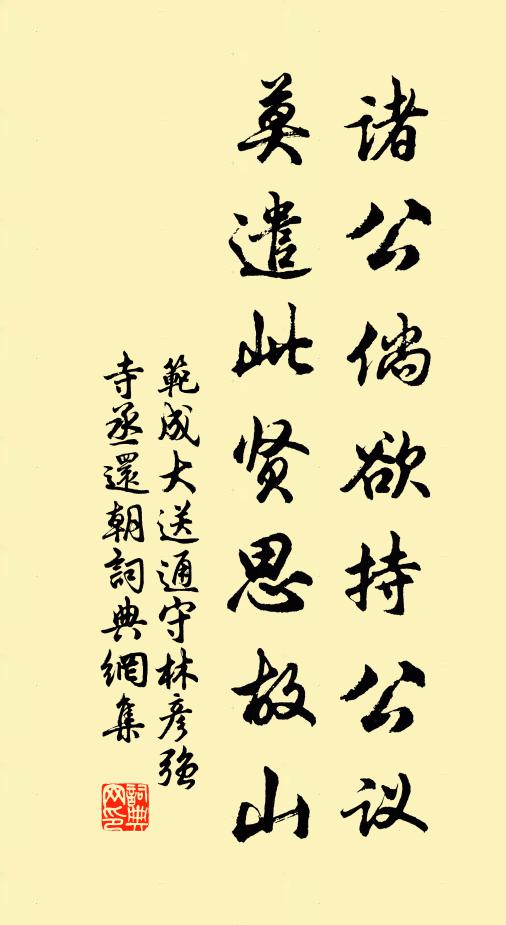 诸公倘欲持公议
莫遣此贤思故山
範成大送通守林彦強
寺丞還朝詞典網集
詞典
网印